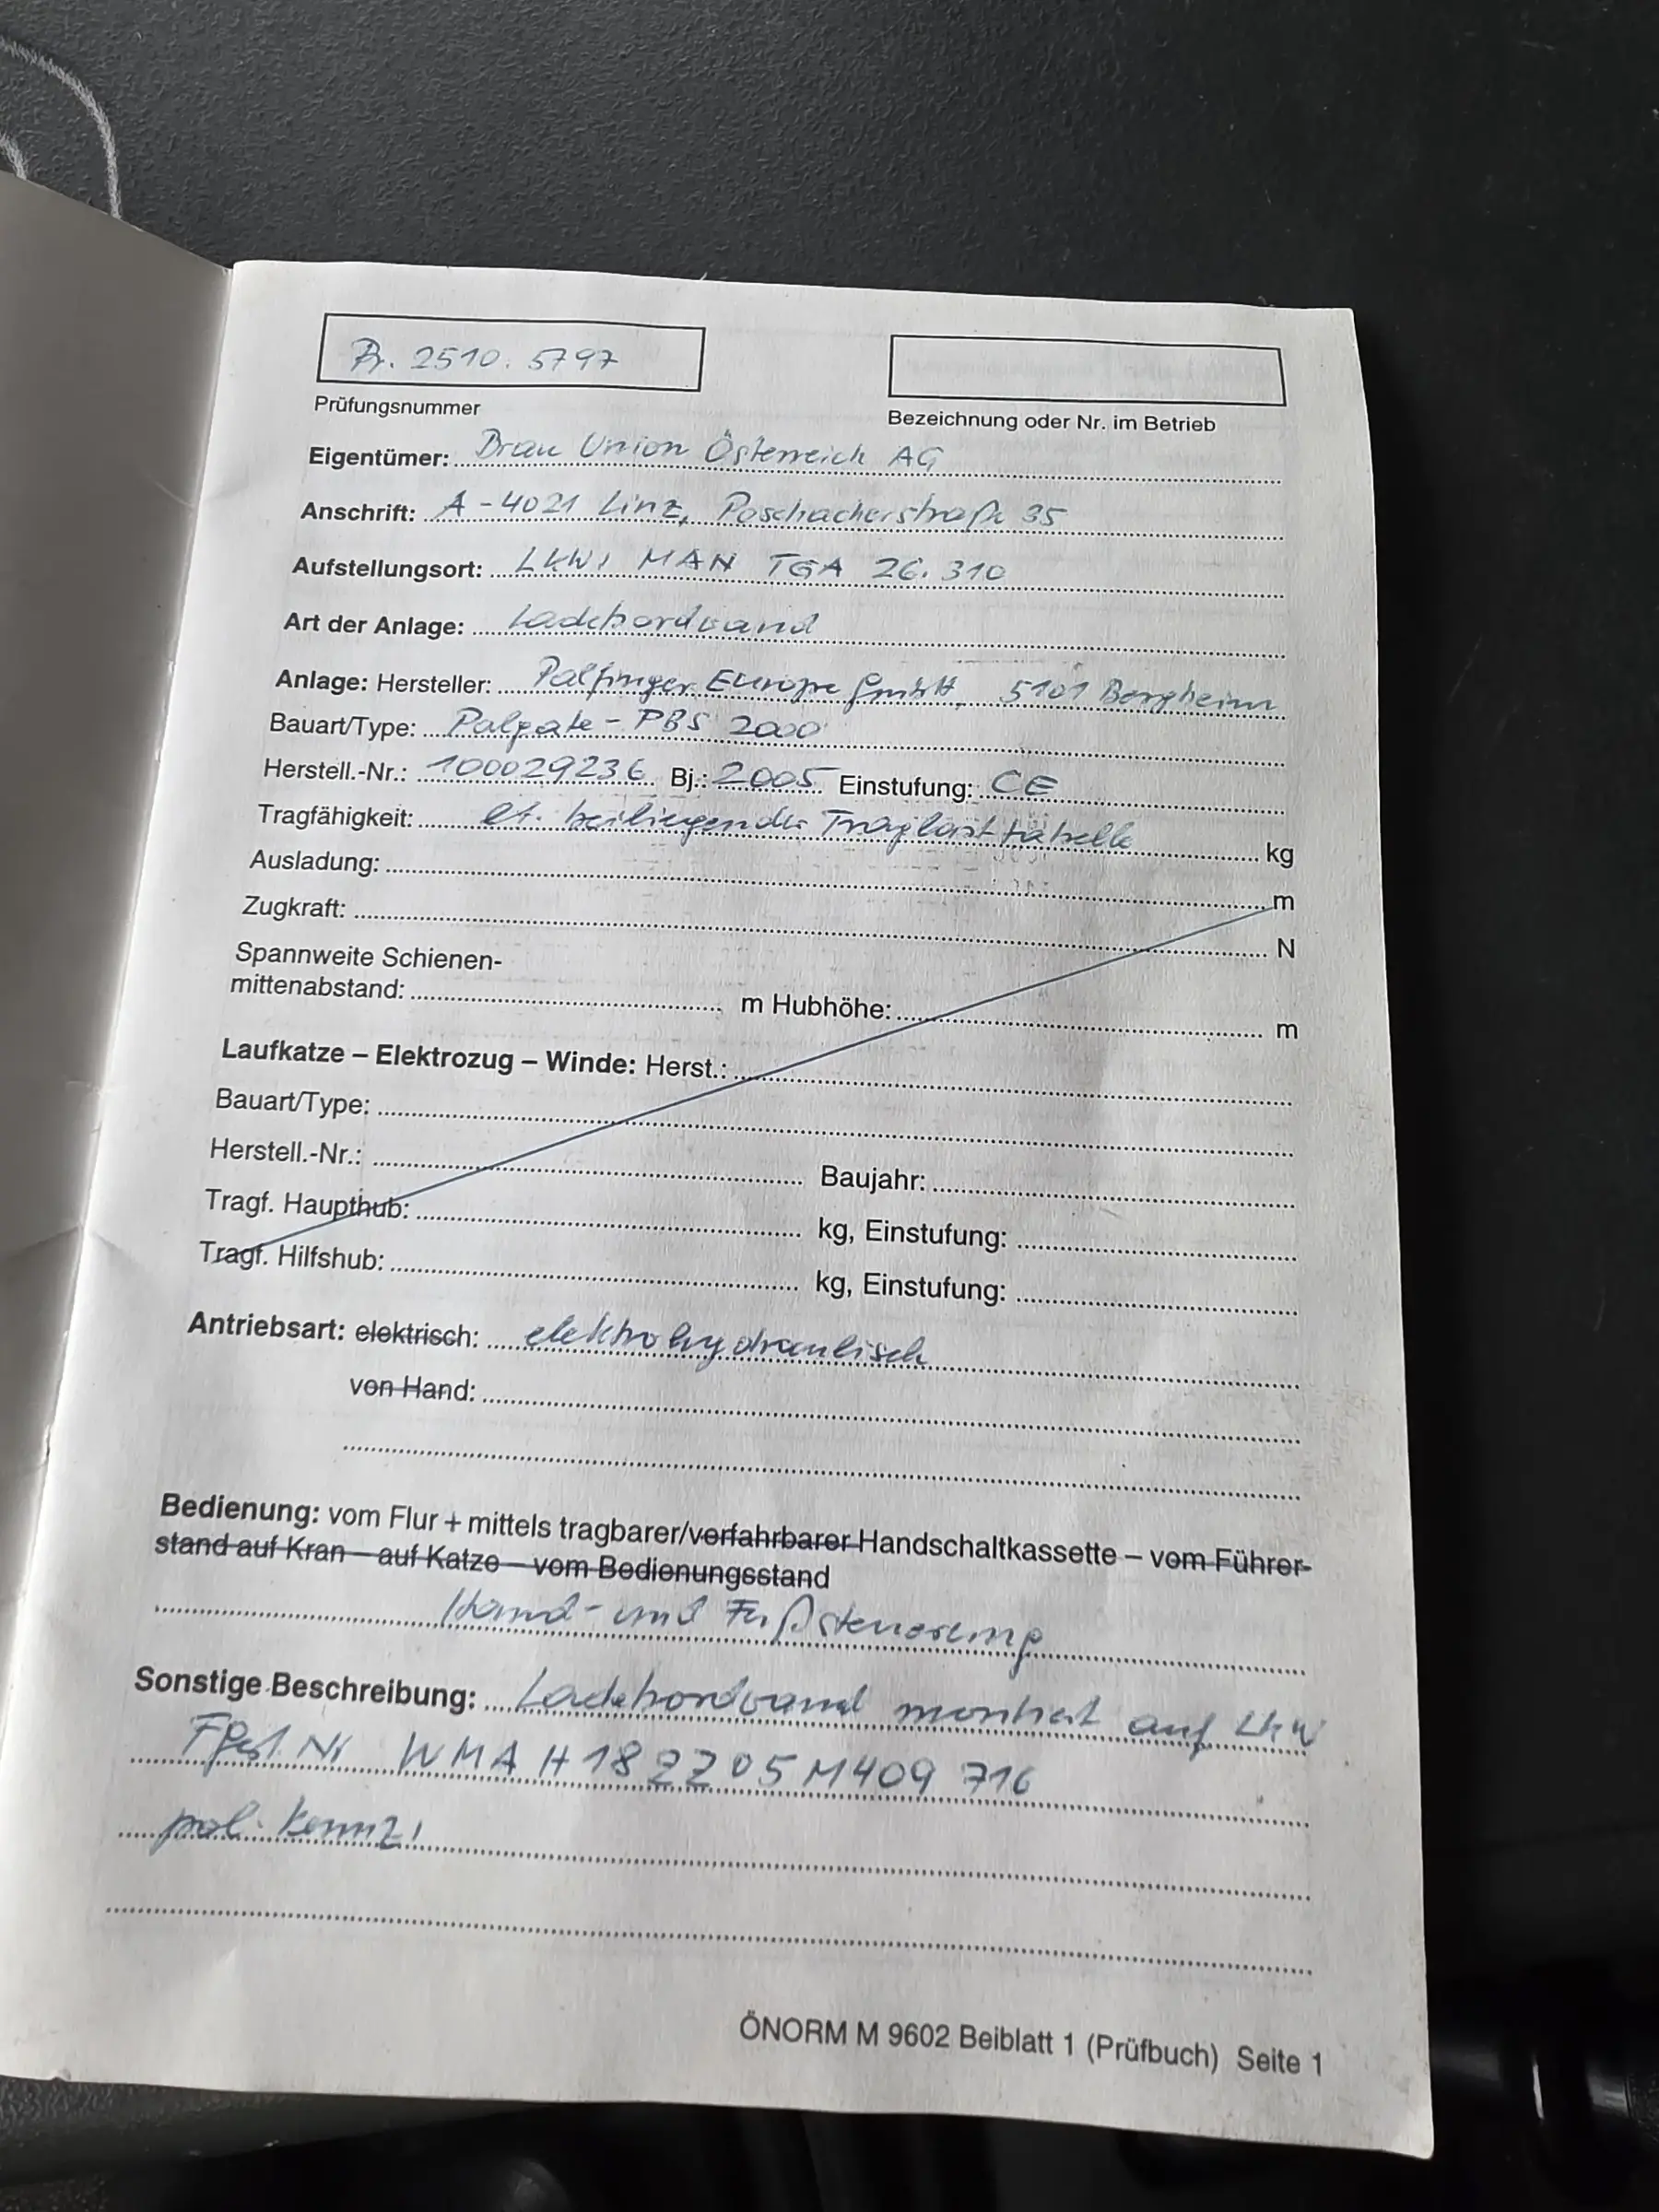 Pr. 2510. 5797
Prüfungsnummer
Bezeichnung oder Nr. im Betrieb
Eigentümer: Brau Union Österreich AG
Anschrift: A-4021 Linz, Poschacherstraße 35
Aufstellungsort: LKW, MAN TGA 26.310
Art der Anlage: Ladebordwand
Anlage: Hersteller: Palfinger Europe GmbH 5101 Bergheim
Bauart/Type: Palgate - PBS 2000
Herstell.-Nr.: 100029236 Bj.: 2005 Einstufung: CE
Tragfähigkeit: lt. beiliegender Traglasttabelle kg
Ausladung: m
Zugkraft: N
Spannweite Schienen-
mittenabstand: m Hubhöhe: m
Laufkatze – Elektrozug – Winde: Herst.:
Bauart/Type:
Herstell.-Nr.: Baujahr:
Tragf. Haupthub: kg, Einstufung:
Tragf. Hilfshub: kg, Einstufung:
Antriebsart: elektrisch: elektrohydraulisch
von Hand:
Bedienung: vom Flur + mittels tragbarer/verfahrbarer Handschaltkassette – vom Führer-
stand auf Kran – auf Katze – vom Bedienungsstand
Hand- und Fußsteuerung
Sonstige Beschreibung: Ladebordwand montiert auf LKW
Fgst. Nr WMAH18ZZ05M409716
pol. Kennz.
ÖNORM M 9602 Beiblatt 1 (Prüfbuch) Seite 1